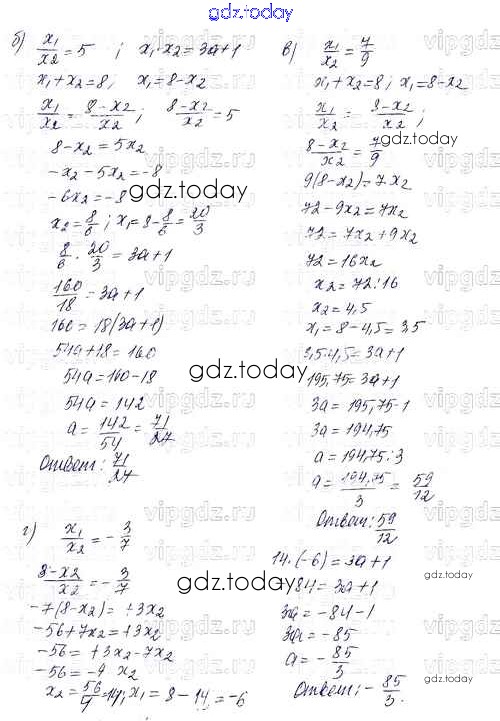 gdz.today
б) x₁/x₂ = 5 ; x₁·x₂ = 3a+1
x₁+x₂=8; x₁=8-x₂
x₁/x₂ = 8-x₂/x₂; 8-x₂/x₂ = 5
8-x₂ = 5x₂
-x₂-5x₂=-8
-6x₂=-8
x₂=8/6; x₁=8-8/6=20/3
8/6 · 20/3 = 3a+1
160/18 = 3a+1
160=18(3a+1)
54a+18=160
54a=160-18
54a=142
a=142/54=71/27
Ответ: 71/27
в) x₁/x₂ = 7/9
x₁+x₂=8; x₁=8-x₂
x₁/x₂ = 8-x₂/x₂;
8-x₂/x₂ = 7/9
9(8-x₂)=7x₂
72-9x₂=7x₂
72=7x₂+9x₂
72=16x₂
x₂=72:16
x₂=4,5
x₁=8-4,5=3,5
3,5·4,5=3a+1
195,75=3a+1
3a=195,75-1
3a=194,75
a=194,75:3
a=194,75/3=59/12
Ответ: 59/12
г) x₁/x₂ = -3/7
8-x₂/x₂ = -3/7
-7(8-x₂)=+3x₂
-56+7x₂=+3x₂
-56=+3x₂-7x₂
-56=-4x₂
x₂=56/4=14; x₁=8-14=-6
14·(-6)=3a+1
-84=3a+1
3a=-84-1
3a=-85
a=-85/3
Ответ: -85/3.
gdz.today
gdz.today
gdz.today
gdz.today
gdz.today
gdz.today
gdz.today
vipgdz.ru